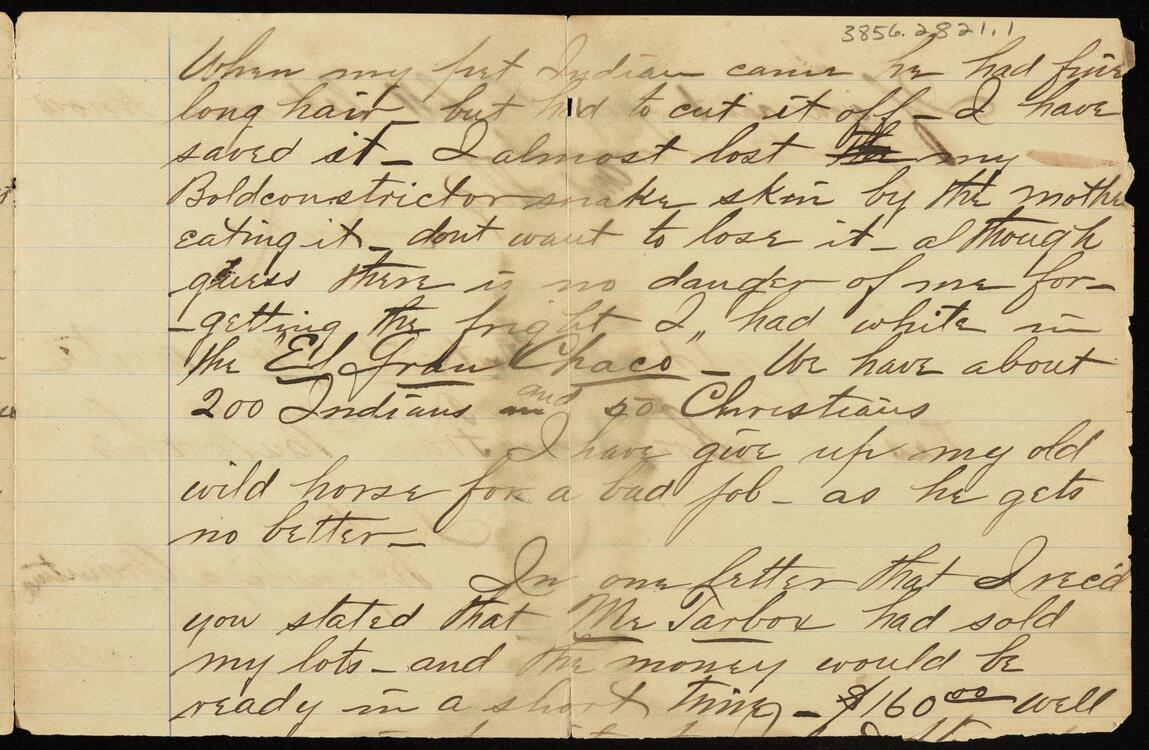 3856.2821.1
When my pet Indian came he had fine
long hair but had to cut it off – I have
saved it – I almost lost the my
Boldconstrictor snake skin by the mothe
eating it – dont want to lose it – although
guess there is no danger of me for–
–getting the fright I had while in
the "El Gran Chaco" – We have about
200 Indians and 50 Christians
I have give up my old
wild horse for a bad job – as he gets
no better –
In one letter that I rec'd
you stated that Mr Tarbox had sold
my lots – and the money would be
ready in a short time – $160.00 well